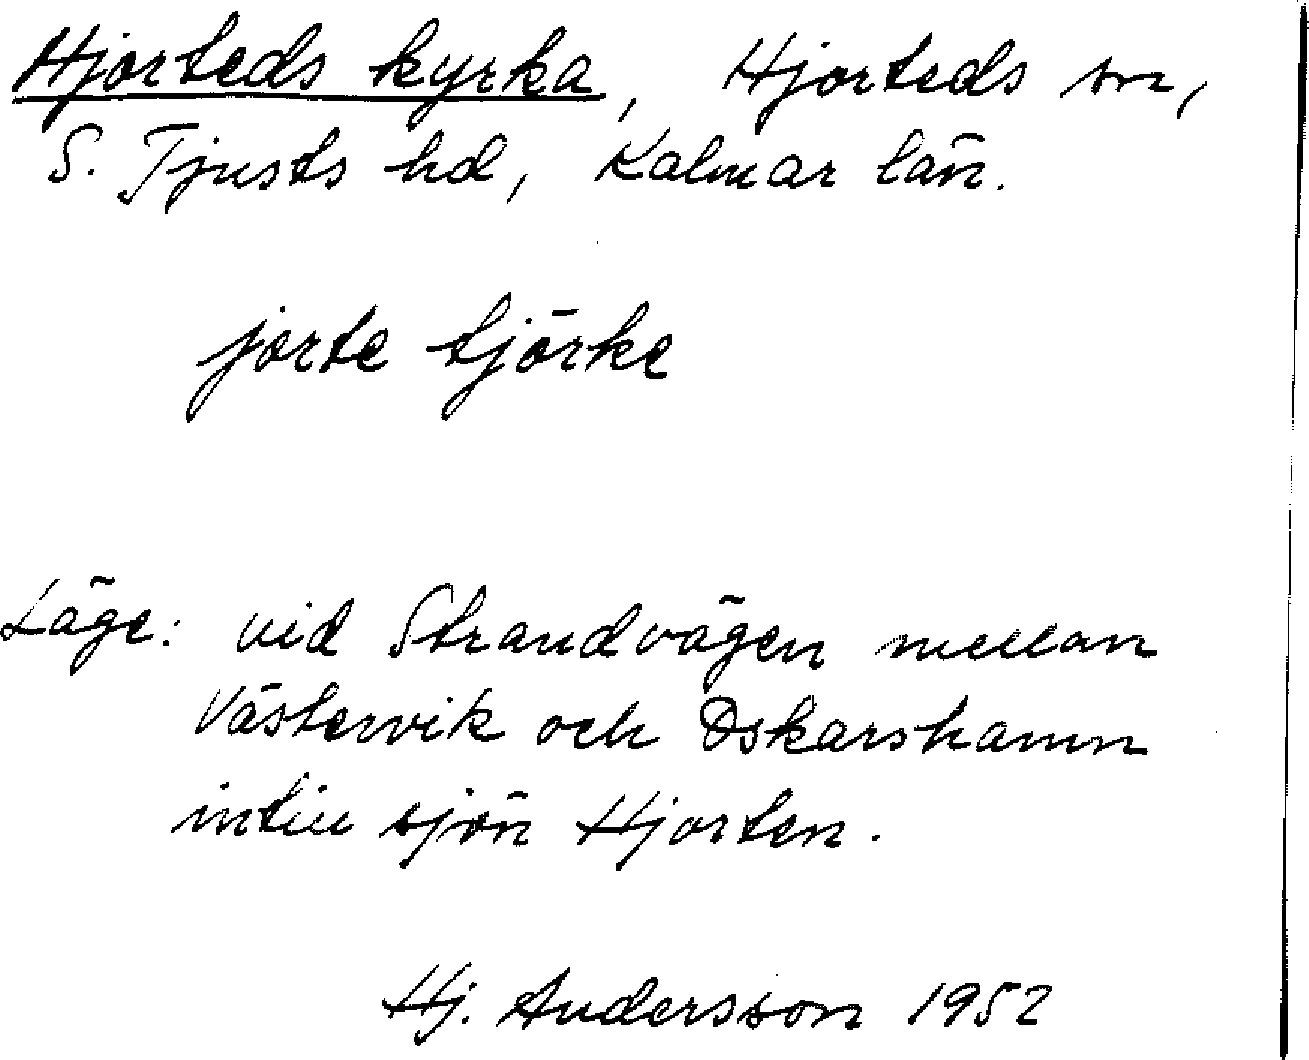 Hjorteds kyrka, Hjorteds sn,
S. Tjusts hd, Kalmar län.
jorte tjörke
Läge: vid Strandvägen mellan
Västervik och Oskarshamn
intill sjön Hjorten.
Hj. Andersson 1952